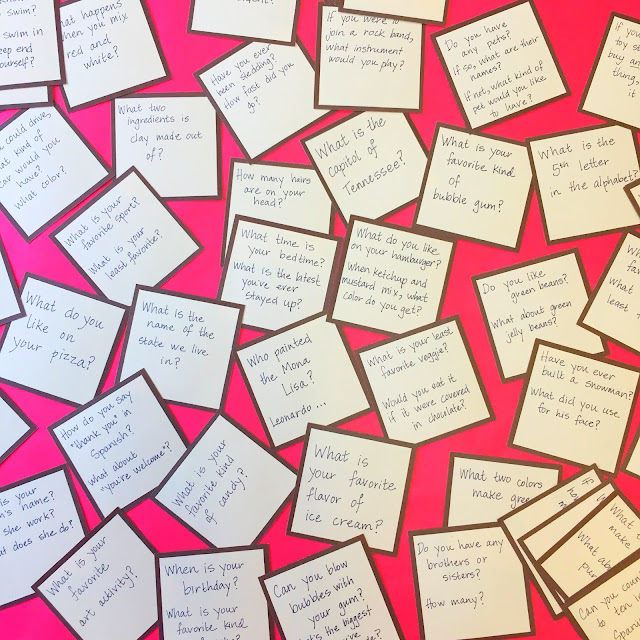 swim?
swim in
deep end
yourself?
what happens
when you mix
red and
white?
If you were to
join a rock band,
what instrument
would you play?
Do you have
any pets?
If so, what are their
names?
If not, what kind of
pet would you like
to have?
If you
toy s
buy an
thing,
it
Have you ever
been sledding?
How fast did you
go?
What two
ingredients is
clay made out
of?
could drive,
what kind of
car would you
have?
What color?
What is the
capitol of
Tennessee?
What is your
favorite kind
of
bubble gum?
What is the
5th letter
in the alphabet?
How many hairs
are on your
head?
What is your
favorite sport?
What is your
least favorite?
What time is
your bedtime?
What is the latest
you've ever
stayed up?
What do you like
on your hamburger?
When ketchup and
mustard mix, what
color do you get?
Do you like
green beans?
What about green
jelly beans?
What do you
like on
your pizza?
What is the
name of the
state we live
in?
Who painted
the Mona
Lisa?
Leonardo...
What is your least
favorite veggie?
Would you eat it
if it were covered
in chocolate?
Have you ever
built a snowman?
What did you use
for his face?
How do you say
"thank you" in
Spanish?
What about
"you're welcome"?
What is your
favorite kind
of candy?
What is
your favorite
flavor of
ice cream?
What two colors
make gree
is your
m's name?
she work?
what does she do?
What is your
favorite
art activity?
When is your
birthday?
What is your
favorite kind
Can you blow
bubbles with
your gum?
the biggest
Do you have any
brothers or
sisters?
How many?
What
make
What abo
pur
Can you cou
to ten